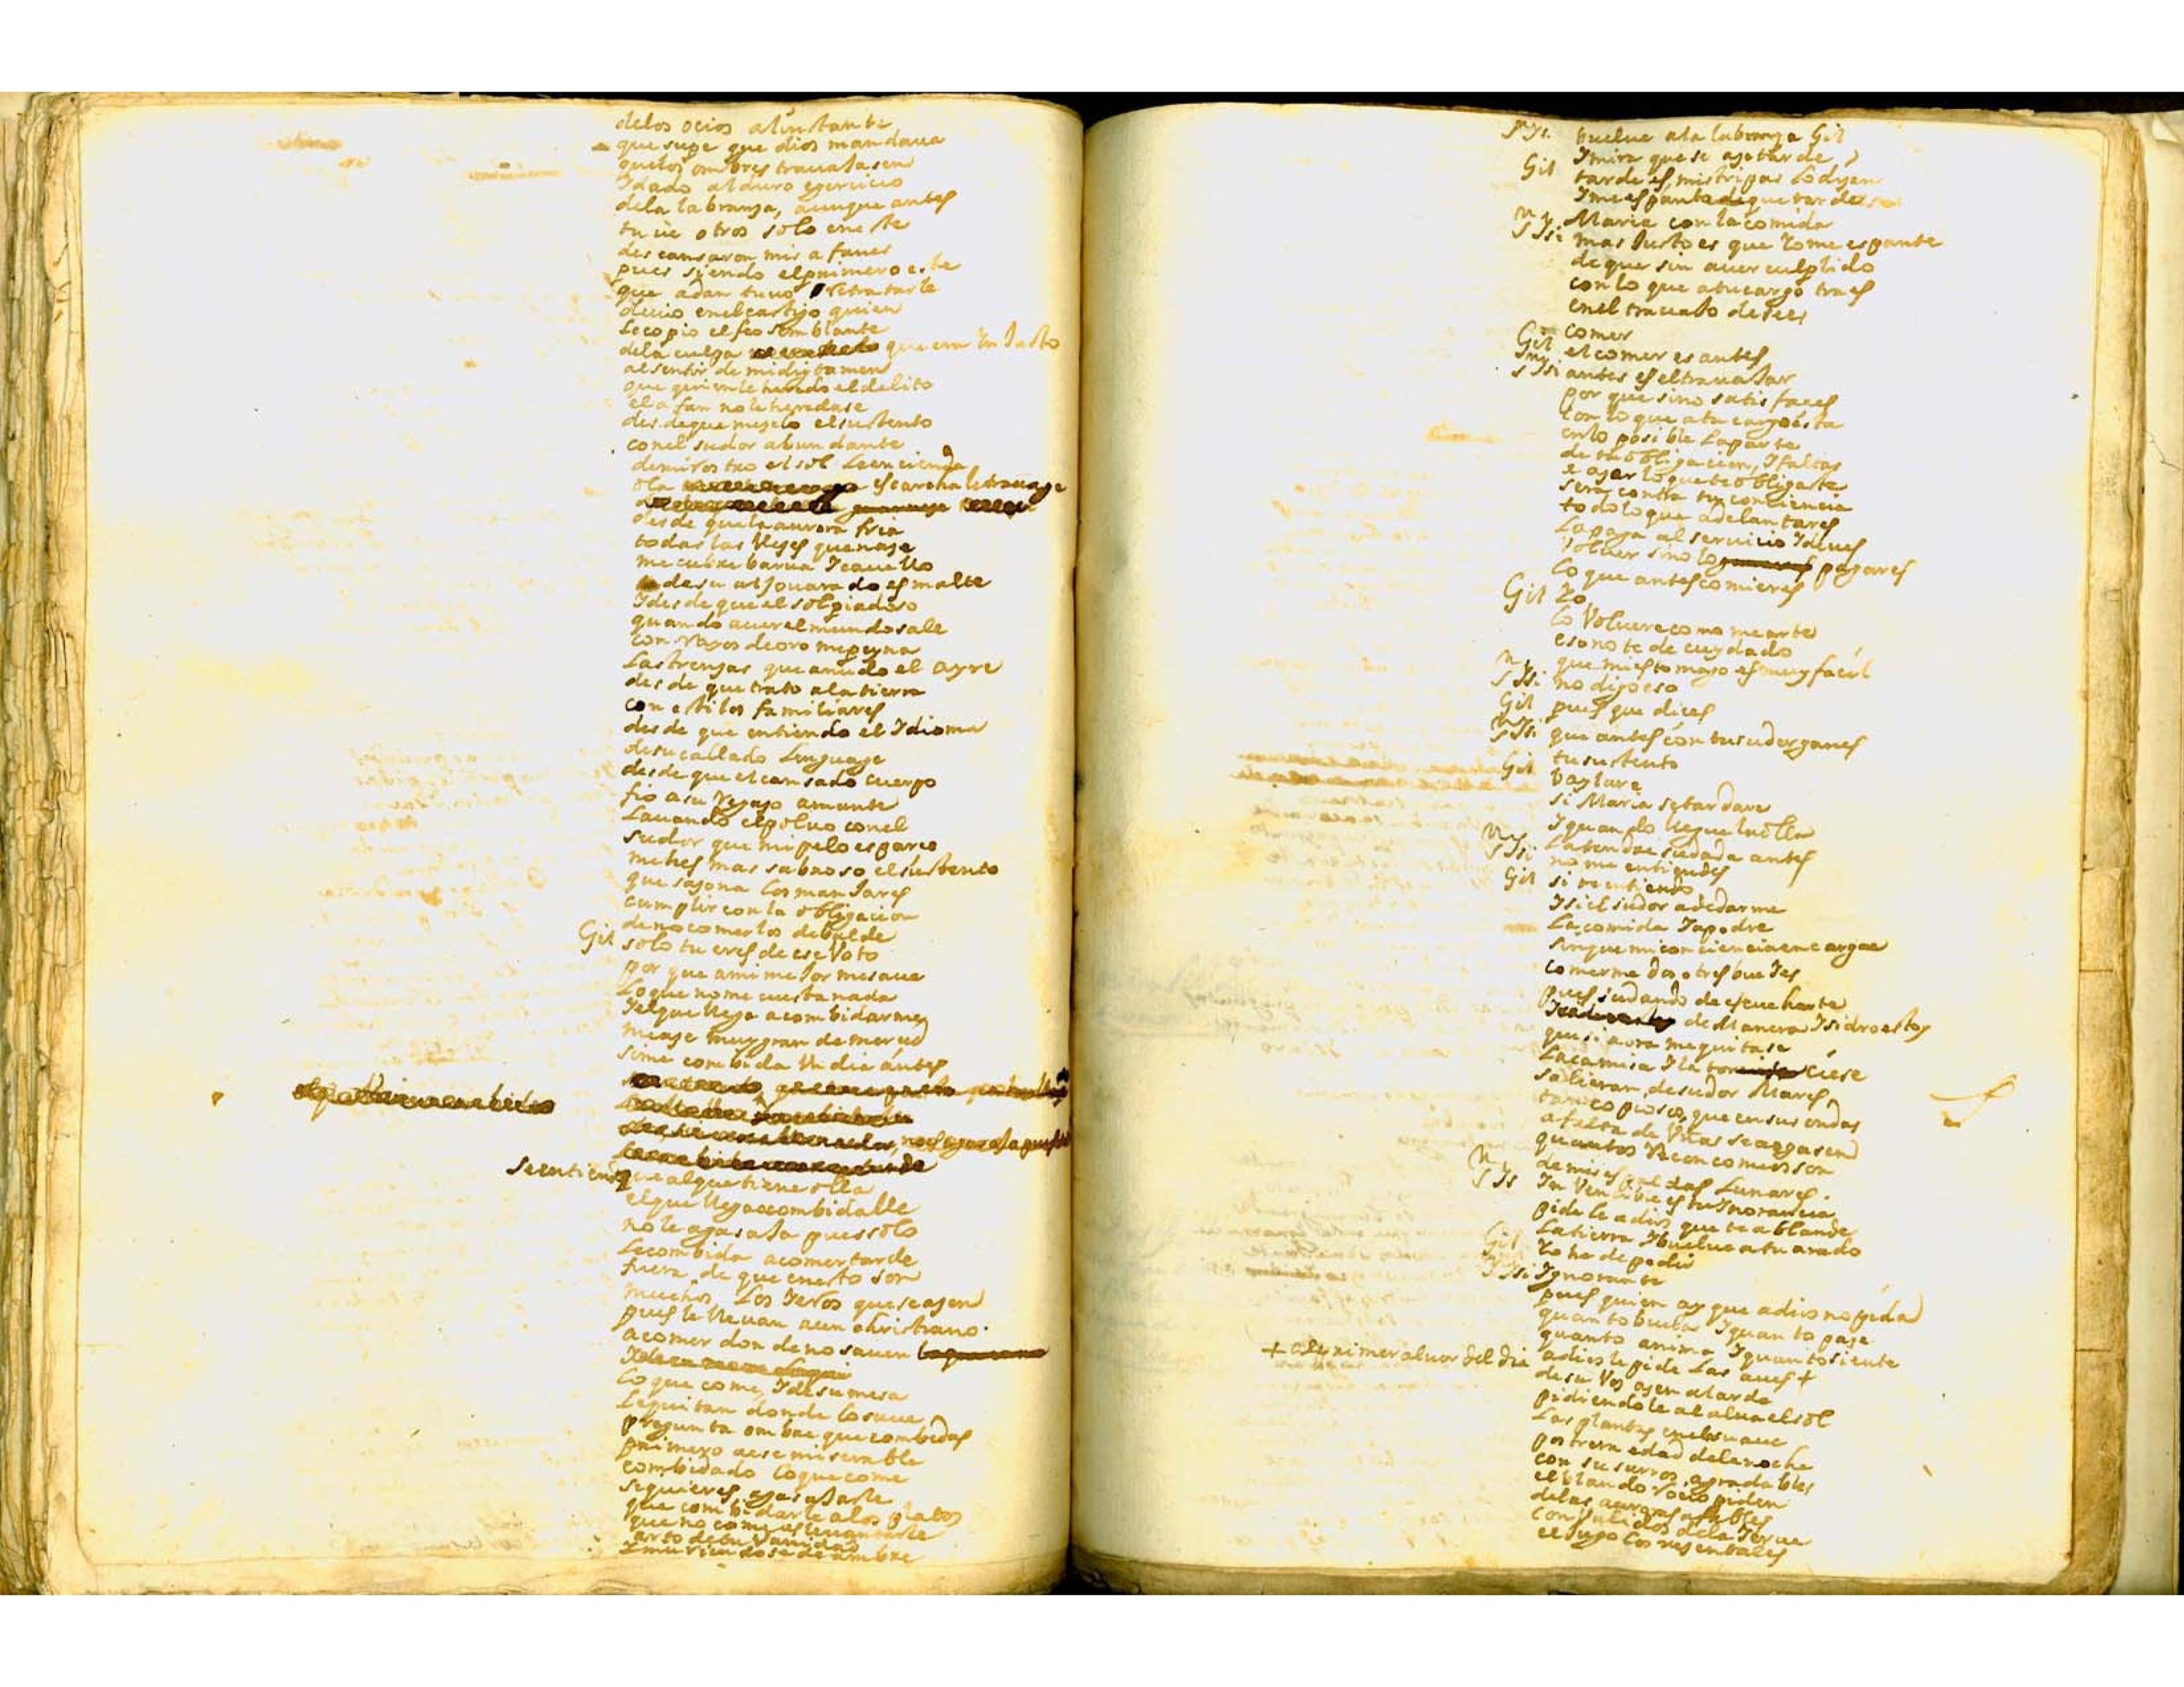 delos ocios al instante
que supe que dios mandaua
quelos ombres trauajasen
Idado alduro egercicio
dela labranza, aunque antes
tuue otros solo eneste
descansaron mis afanes
pues siendo elprimero este
que adan tuuo retratarle
deuio enelcastigo quien
lecopio elfeo semblante
dela culpa que era injusto
alsentir de midictamen
que quienle heredo eldelito
el afan nole heredase
desdeque mezclo elsustento
conel sudor abundante
demirostro el sol leencienda
ola escarcha letrauaje
desde quela aurora fria
todas las veses quenaze
mecubre barua Icauello
desu aljouarado esmalte
Idesde que el sol piadoso
quando auerelmundo sale
con rayos deoro mepeyna
las trenzas que anudo el ayre
desde que trato ala tierra
con estilos familiares
desde que entiendo el Idioma
desu callado lenguage
desde que elcansado cuerpo
fio asu regazo amante
lauando elpoluo conel
sudor que mi pelo esparce
mehes mas sabroso elsustento
que sazona los manjares
cumplir con la obligacion
denocomerlos debalde
Gil solo tu eres de ese voto
por que ami mejor mesaue
lo que nome cuesta nada
Ielque llega acombidarme
meaze muy gran demerced
sime combida un dia antes
noes agasajo
seentiende que alque tiene olla
elque llega acombidalle
nole agasaja pues solo
lecombida acomer tarde
fuera de que enesto son
muchos los Ieros que seazen
pues le lleuan aun christiano
acomer donde no sauen
lo que come, Idesumesa
lequitan donde losaue
pregunta ombre que combidas
primero aese miserable
combidado loque come
siquieres agasajarle
que combidarle alos platos
que no come es leuantarle
arto detu vanidad
Imuriendose deambre
ysi. buelue ala labranza Gil
Imira que se aze tarde
Gil tarde es, mis tripas lo dizen
Ime espanta de que tarde
Maria con la comida
ysi mas justo es que Yo me espante
de que sin auer cumplido
con lo que atucargo traes
enel trauajo desees
comer
Gil el comer es antes
ysi antes es eltrauajar
por que sino satisfaces
con lo que atu cargo esta
enlo posible la parte
de tu obligacion, Ifaltas
a azer lo que te obligaste
sera contra tu conciencia
todolo que adelantares
la paga al seruicio Ideues
voluer sino lo pagares
lo que antes comieres
Gil Yo
lo Voluere como me arte
esono te de cuydado
que mi estomago es muy facil
ysi no digo eso
Gil pues que dices
ysi que antes con tu sudor ganes
tu sustento
Gil baylare
si Maria se tardare
Iquando llegue la olla
la tendre sudada antes
ysi no me entiendes
Gil si te entiendo
Isi el sudor a de darme
la comida Iapodre
sinque mi conciencia encargue
comerme dos o tres bueIes
pues sudando de escucharte
de Manera Isidro estoy
que si aora me quitase
la camisa I la torciese
salieran de sudor Mares
tan copiosos, que en sus ondas
a falta de Vñas se aogasen
quantos Reconcomios son
de mis espaldas lunares.
ysi Inuencible es tu Inorancia
pidele adios que te ablande
la tierra Ibuelue atu arado
Gil Yo he de pedir
ysi Ignorante
pues quien ay que adios no pida
quanto buela Iquanto paze
quanto anima Iquanto siente
+ al primer aluor del dia adios le pide las aues +
de su Vos azen alarde
pidiendole al alua el sol
las plantas enelsuaue
postrera edad dela noche
con susurros agradables
el blando rocio piden
delas auroras afables
con balidos dela Ierua
el jugo los resentales